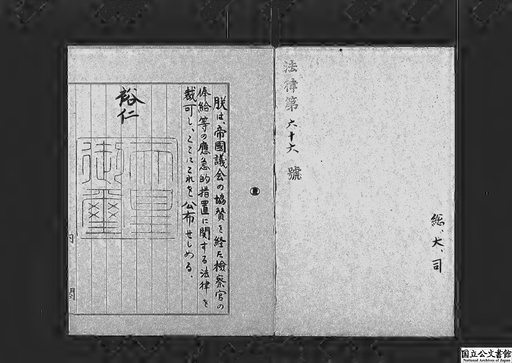 法律第六十六號
総、大、司
朕は、帝國議会の協賛を経た檢察官の
俸給等の應急的措置に関する法律を
裁可し、ここにこれを公布せしめる。
裕仁
天皇
御璽
内閣
国立公文書館
National Archives of Japan